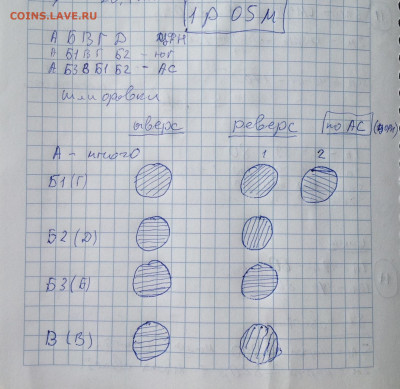 COINS.LAVE.RU
1 р 05 м
А Б В Г Д
А Б1 В Г Б2 - ЮГ
А Б3 В Б1 Б2 - АС
шлифовки
аверс реверс по АС
А - много 1 2
Б1 (Г)
Б2 (Д)
Б3 (Б)
В (В)